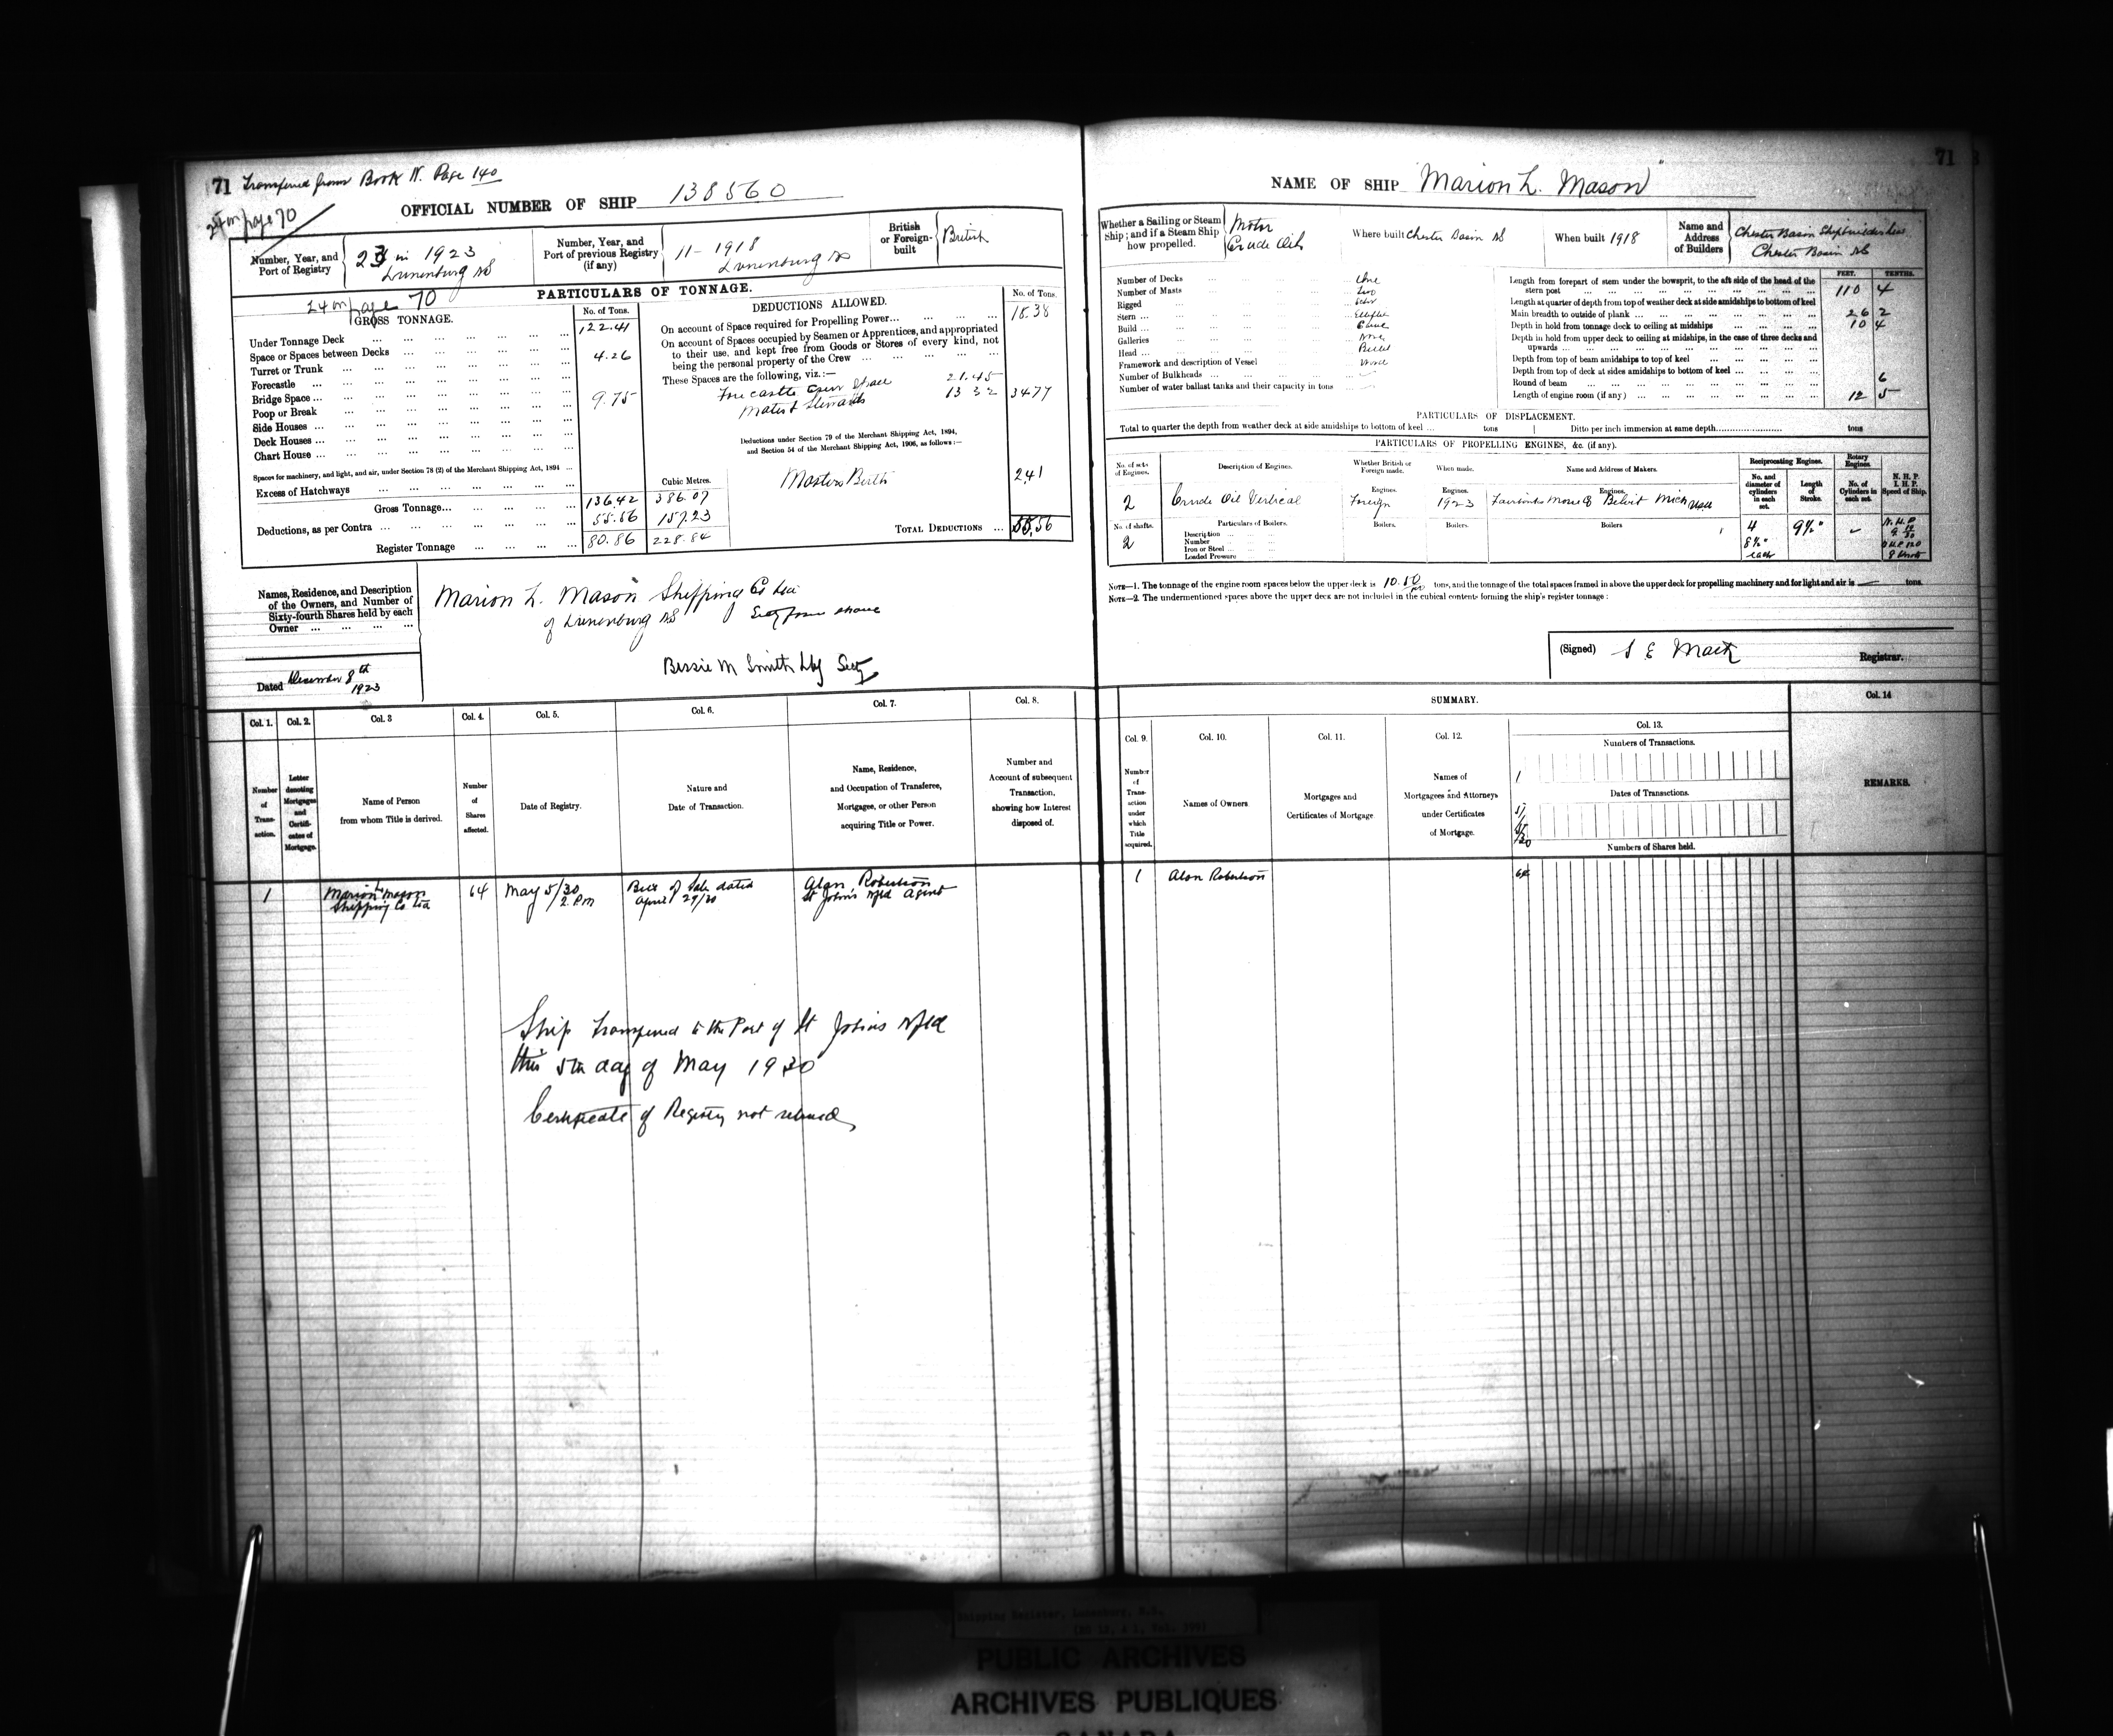 71 Transfered from Book N. Page 140
24 on page 70
OFFICIAL NUMBER OF SHIP 138560
Number, Year, and
Port of Registry
23 in 1923
Lunenburg NS
Number, Year, and
Port of previous Registry
(if any)
11-1918
Lunenburg NS
British
or Foreign-
built
British
24 on page 70
PARTICULARS OF TONNAGE.
GROSS TONNAGE.
No. of Tons.
Under Tonnage Deck ... 122.41
Space or Spaces between Decks
Turret or Trunk ... 4.26
Forecastle
Bridge Space
Poop or Break ... 9.75
Side Houses
Deck Houses
Chart House
Spaces for machinery, and light, and air, under Section 78 (2) of the Merchant Shipping Act, 1894
Excess of Hatchways
Cubic Metres.
Gross Tonnage ... 136.42 386.07
Deductions, as per Contra ... 55.56 157.23
Register Tonnage ... 80.86 228.84
DEDUCTIONS ALLOWED.
No. of Tons.
On account of Space required for Propelling Power ... 18.38
On account of Spaces occupied by Seamen or Apprentices, and appropriated
to their use, and kept free from Goods or Stores of every kind, not
being the personal property of the Crew
These Spaces are the following, viz.:—
Forecastle Crew Space 21.45
Mates & Stewards 13 32 34 77
Deductions under Section 79 of the Merchant Shipping Act, 1894,
and Section 54 of the Merchant Shipping Act, 1906, as follows:—
Masters Berth 2.41
TOTAL DEDUCTIONS ... 55.56
Names, Residence, and Description
of the Owners, and Number of
Sixty-fourth Shares held by each
Owner
Marion L. Mason Shipping Co Ltd
of Lunenburg NS Sixty four shares
Bessie M Smith Secty
Dated December 8th
1923
Col. 1. Col. 2. Col. 3 Col. 4. Col. 5. Col. 6. Col. 7. Col. 8.
Number
of
Trans-
action.
Letter
denoting
Mortgages
and
Certifi-
cates of
Mortgage.
Name of Person
from whom Title is derived.
Number
of
Shares
affected.
Date of Registry.
Nature and
Date of Transaction.
Name, Residence,
and Occupation of Transferee,
Mortgagee, or other Person
acquiring Title or Power.
Number and
Account of subsequent
Transaction,
showing how Interest
disposed of.
1
Marion L Mason
Shipping Co Ltd
64
May 5/30
2 Pm
Bill of Sale dated
April 29/30
Alan Robertson
St Johns Nfld Agent
Ship Transfered to the Port of St Johns Nfld
this 5th day of May 1930
Certificate of Registry not
71
NAME OF SHIP "Marion L. Mason"
Whether a Sailing or Steam
Ship; and if a Steam Ship
how propelled.
Motor
Crude Oil
Where built Chester Basin NS
When built 1918
Name and
Address
of Builders
Chester Basin Shipbuilders
Chester Basin NS
Number of Decks ... One
Number of Masts ... Two
Rigged ... Schr
Stern ... Elliptic
Build ... Carvel
Galleries ... None
Head ... Billet
Framework and description of Vessel ... Wood
Number of Bulkheads
Number of water ballast tanks and their capacity in tons
FEET. TENTHS.
Length from forepart of stem under the bowsprit, to the aft side of the head of the
stern post ... 110 4
Length at quarter of depth from top of weather deck at side amidships to bottom of keel
Main breadth to outside of plank ... 26 2
Depth in hold from tonnage deck to ceiling at midships ... 10 4
Depth in hold from upper deck to ceiling at midships, in the case of three decks and
upwards
Depth from top of beam amidships to top of keel
Depth from top of deck at sides amidships to bottom of keel
Round of beam ... 6
Length of engine room (if any) ... 12 5
PARTICULARS OF DISPLACEMENT.
Total to quarter the depth from weather deck at side amidships to bottom of keel ... tons | Ditto per inch immersion at same depth ... tons
PARTICULARS OF PROPELLING ENGINES, &c. (if any).
No. of sets
of Engines.
Description of Engines.
Whether British or
Foreign made.
When made.
Name and Address of Makers.
Reciprocating Engines.
No. and
diameter of
cylinders
in each
set.
Length
of
Stroke.
Rotary
Engines.
No. of
Cylinders in
each set.
N. H. P.
I. H. P.
Speed of Ship.
Engines. Engines. Engines.
2 Crude Oil Vertical Foreign 1923 Fairbanks Morse Co Beloit Mich USA
No. of shafts.
2
Particulars of Boilers.
Boilers. Boilers. Boilers
Description
Number
Iron or Steel
Loaded Pressure
4
8½"
each
9½"
N.H.P
B H P 120
8 Knots
NOTE—1. The tonnage of the engine room spaces below the upper deck is 10.50 tons, and the tonnage of the total spaces framed in above the upper deck for propelling machinery and for light and air is — tons.
NOTE—2. The undermentioned spaces above the upper deck are not included in the cubical contents forming the ship's register tonnage:
(Signed) S E Mack Registrar.
SUMMARY.
Col. 9. Col. 10. Col. 11. Col. 12. Col. 13. Col. 14
Number
of
Trans-
action
under
which
Title
acquired.
Names of Owners.
Mortgages and
Certificates of Mortgage
Names of
Mortgagees and Attorneys
under Certificates
of Mortgage.
Numbers of Transactions.
1
Dates of Transactions.
5/5/30
Numbers of Shares held.
REMARKS.
1 Alan Robertson 64
Shipping Register, Lunenburg, N.S.
PUBLIC ARCHIVES
ARCHIVES PUBLIQUES
CANADA